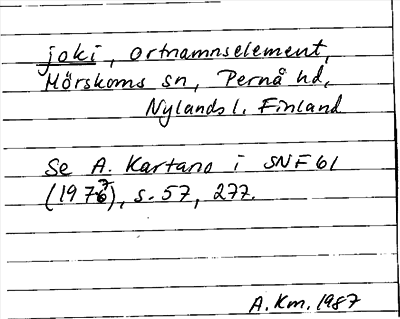 joki, ortnamnselement,
Mörskoms sn, Pernå hd,
Nylands l. Finland
Se A. Kartano i SNF 61
(1976), s. 57, 277.
A. Km. 1987